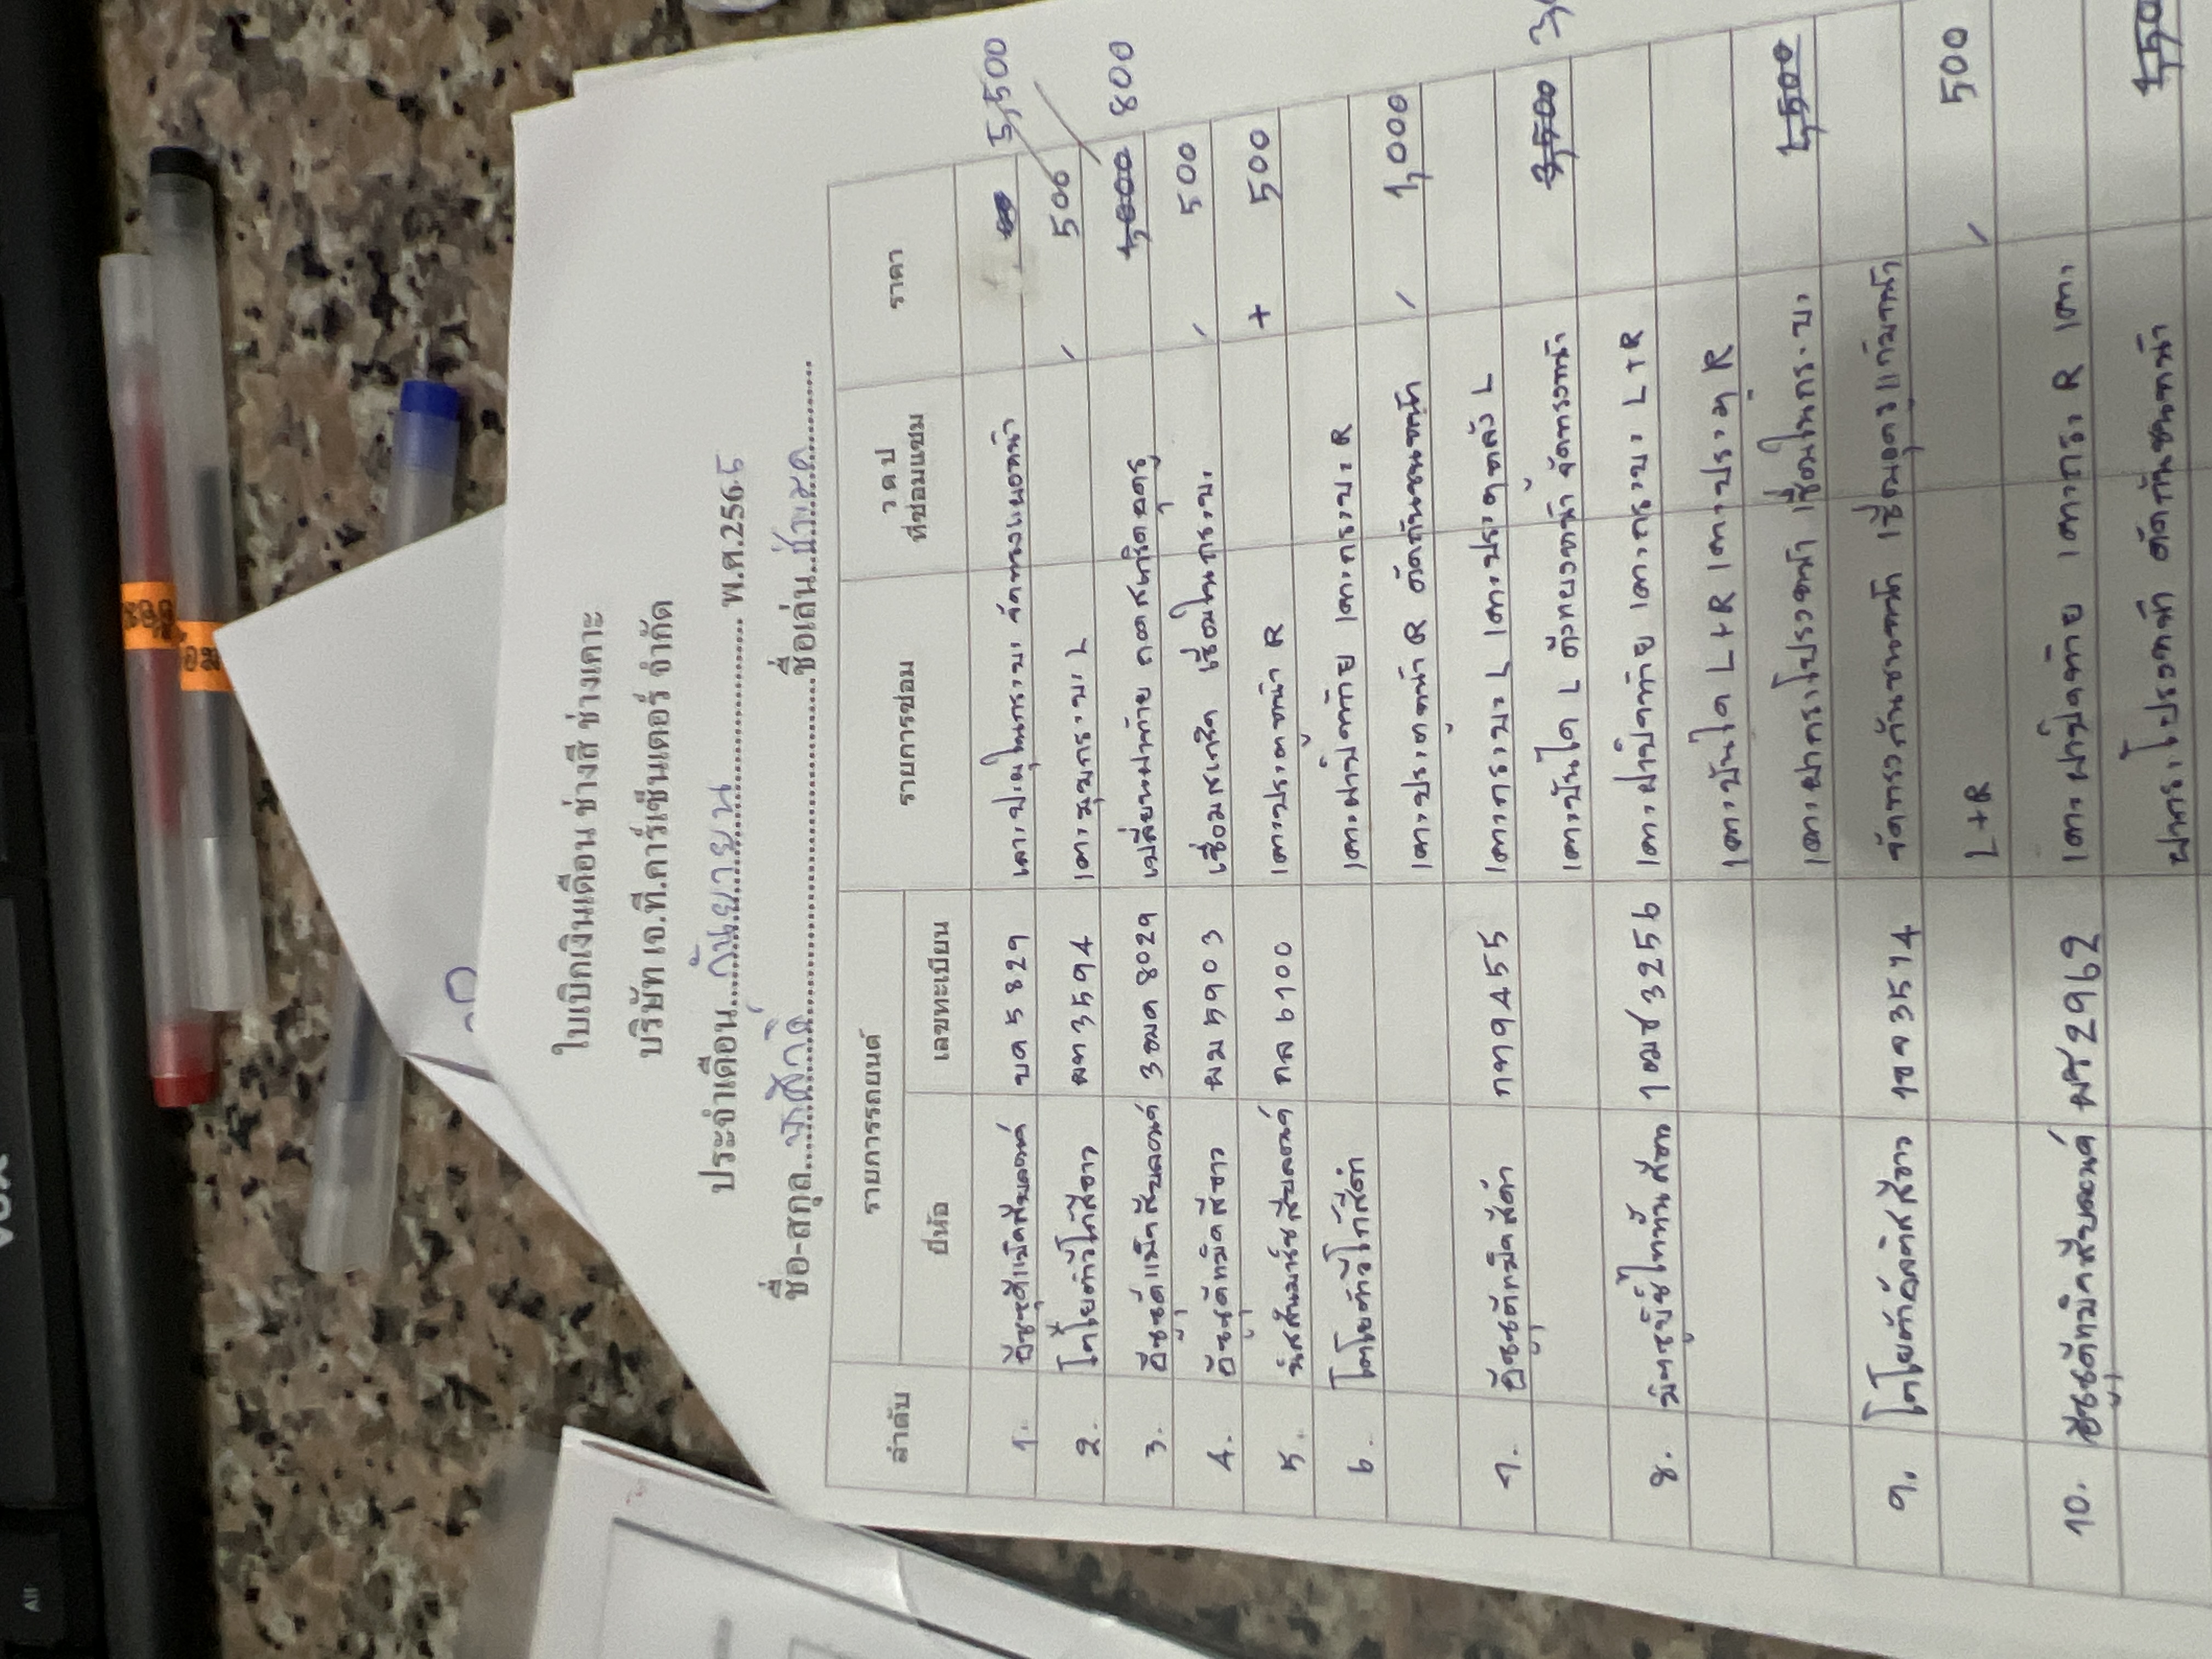 ใบเบิกเงินเดือน ช่างสี ช่างเคาะ
บริษัท เจ.ที.คาร์เซ็นเตอร์ จำกัด
ประจำเดือน กันยายน พ.ศ.2565
ชื่อ-สกุล ชื่อเล่น
ลำดับ รายการรถยนต์ รายการซ่อม ว ด ป ราคา
ยี่ห้อ เลขทะเบียน ที่ซ่อมแซม
1. อีซูซุสีบลอนด์ บด 5829 เคาะปะผุในกระบะ จัดทรงแผงหน้า 5,500
2. โตโยต้าวีโก้สีขาว ผท 3594 เคาะมุมกระบะ L 500
3. อีซูซุดีแม็กสีบลอนด์ 3ฒค 8029 เปลี่ยนฝาท้าย 1,000 800
4. อีซูซุดีแม็กสีขาว ผม 5903 เชื่อมสเกิต เชื่อมในกระบะ 500
5. นิสสันมาร์ชสีบลอนด์ กล 6100 เคาะประตูหน้า R + 500
6. โตโยต้าวีโก้สีดำ เคาะฝาปิดท้าย เคาะกระบะ R
เคาะประตูหน้า R ดัดกันชนหน้า 1,000
7. อีซูซุดีแม็กสีดำ กท 9455 เคาะกระบะ L เคาะประตูหลัง L
เคาะบันได L จัดทรงหน้า 3,500
8. มิตซูบิชิไททันสีขาว 1ฒช 3256 เคาะฝาปิดท้าย เคาะกระบะ L+R
เคาะบันได L+R เคาะประตู R
เคาะฝากระโปรงหน้า เชื่อมในกระบะ 1,500
9. โตโยต้าอัลติสสีขาว 3574 จัดทรงกันชนหน้า เชื่อมจุดรูแก้มหน้า
L+R 500
10. อีซูซุดีแม็กสีบลอนด์ ผช 2962 เคาะฝาปิดท้าย เคาะกระบะ R เคาะ
ฝากระโปรงหน้า ดัดกันชนหน้า 1,500